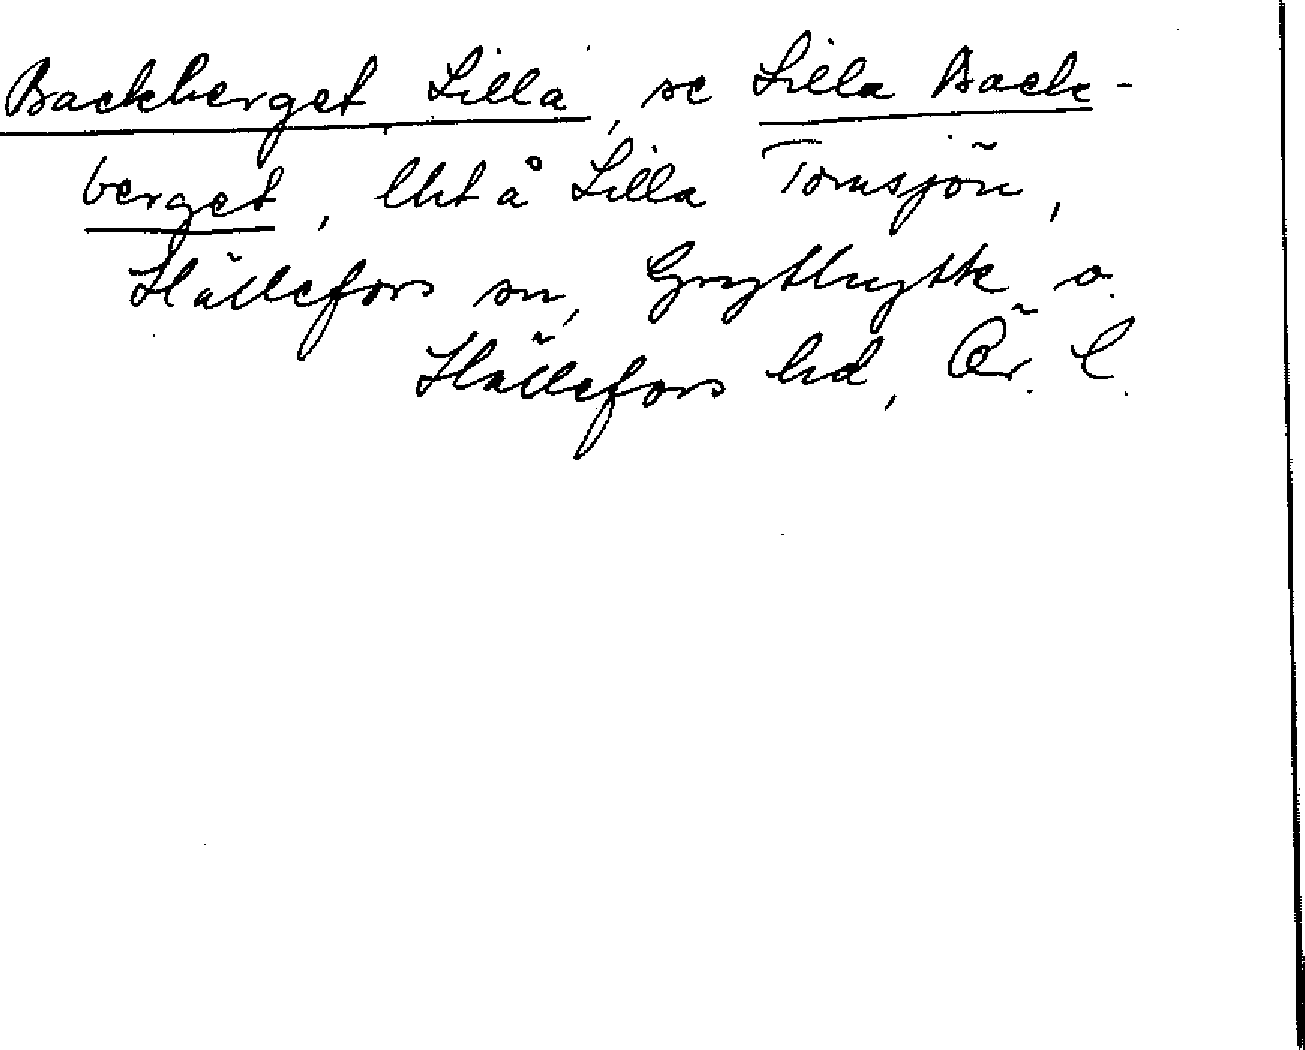 Backberget Lilla, se Lilla Back-
berget, lht å Lilla Tomsjön,
Hällefors sn, Grythytte o.
Hällefors hd, Ör. l.